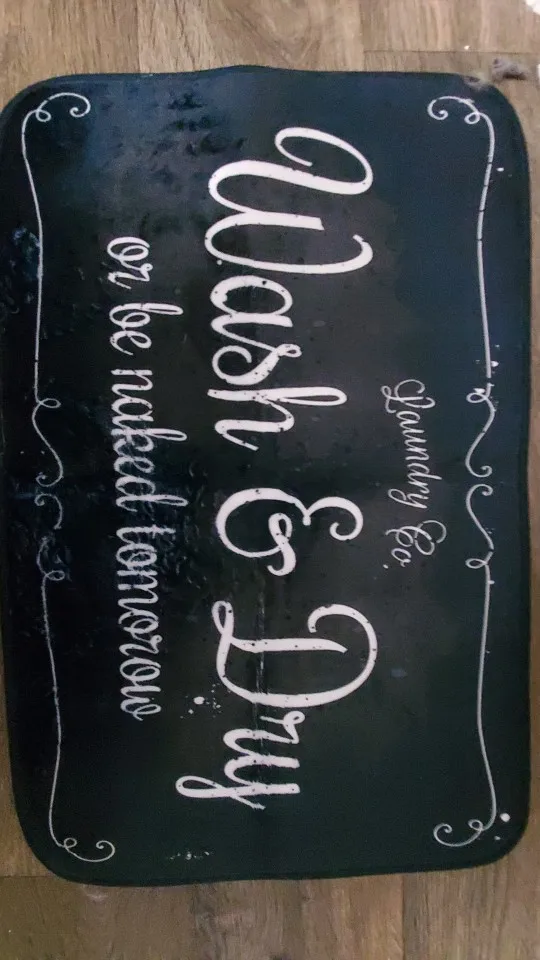 Laundry Co.
Wash & Dry
or be naked tomorow